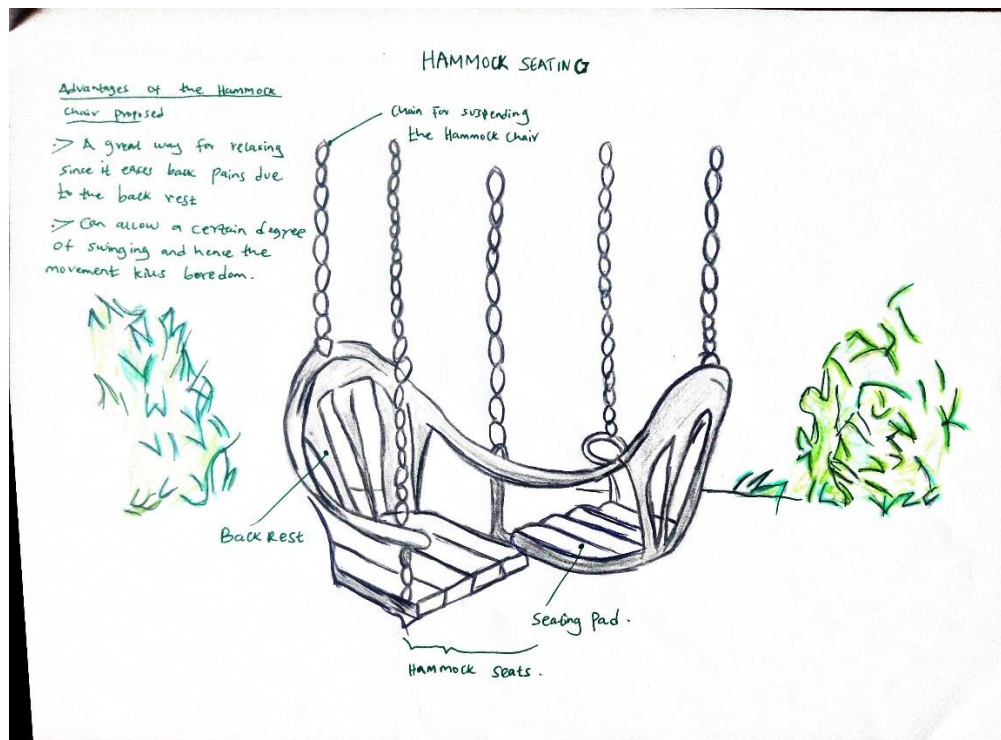 HAMMOCK SEATING
Advantages of the Hammock
Chair proposed
:> A great way for relaxing
since it eases back pains due
to the back rest
:> Can allow a certain degree
of swinging and hence the
movement kills boredom.
Chain for suspending
the Hammock Chair
Back Rest
Seating Pad.
Hammock seats.